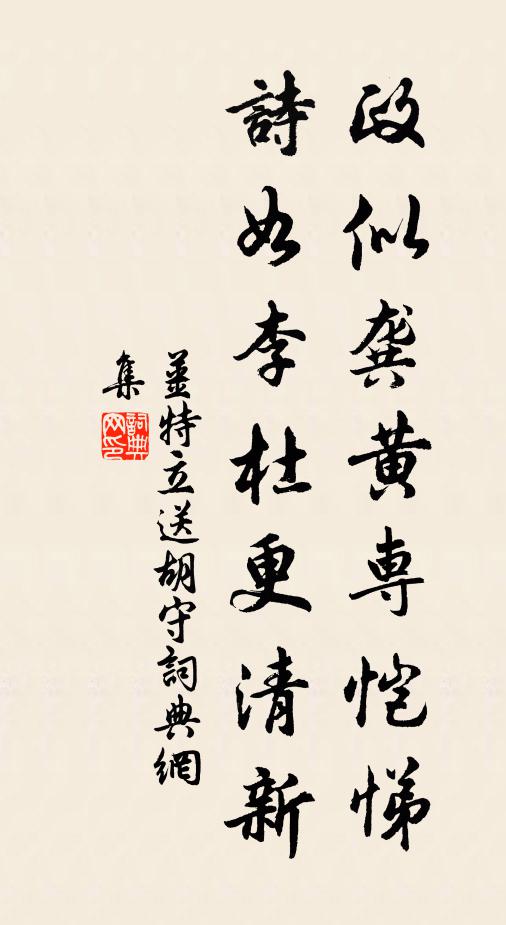 政似龔黄専愷悌
詩如李杜更清新
姜特立送胡守詞典網
集
詞典網印